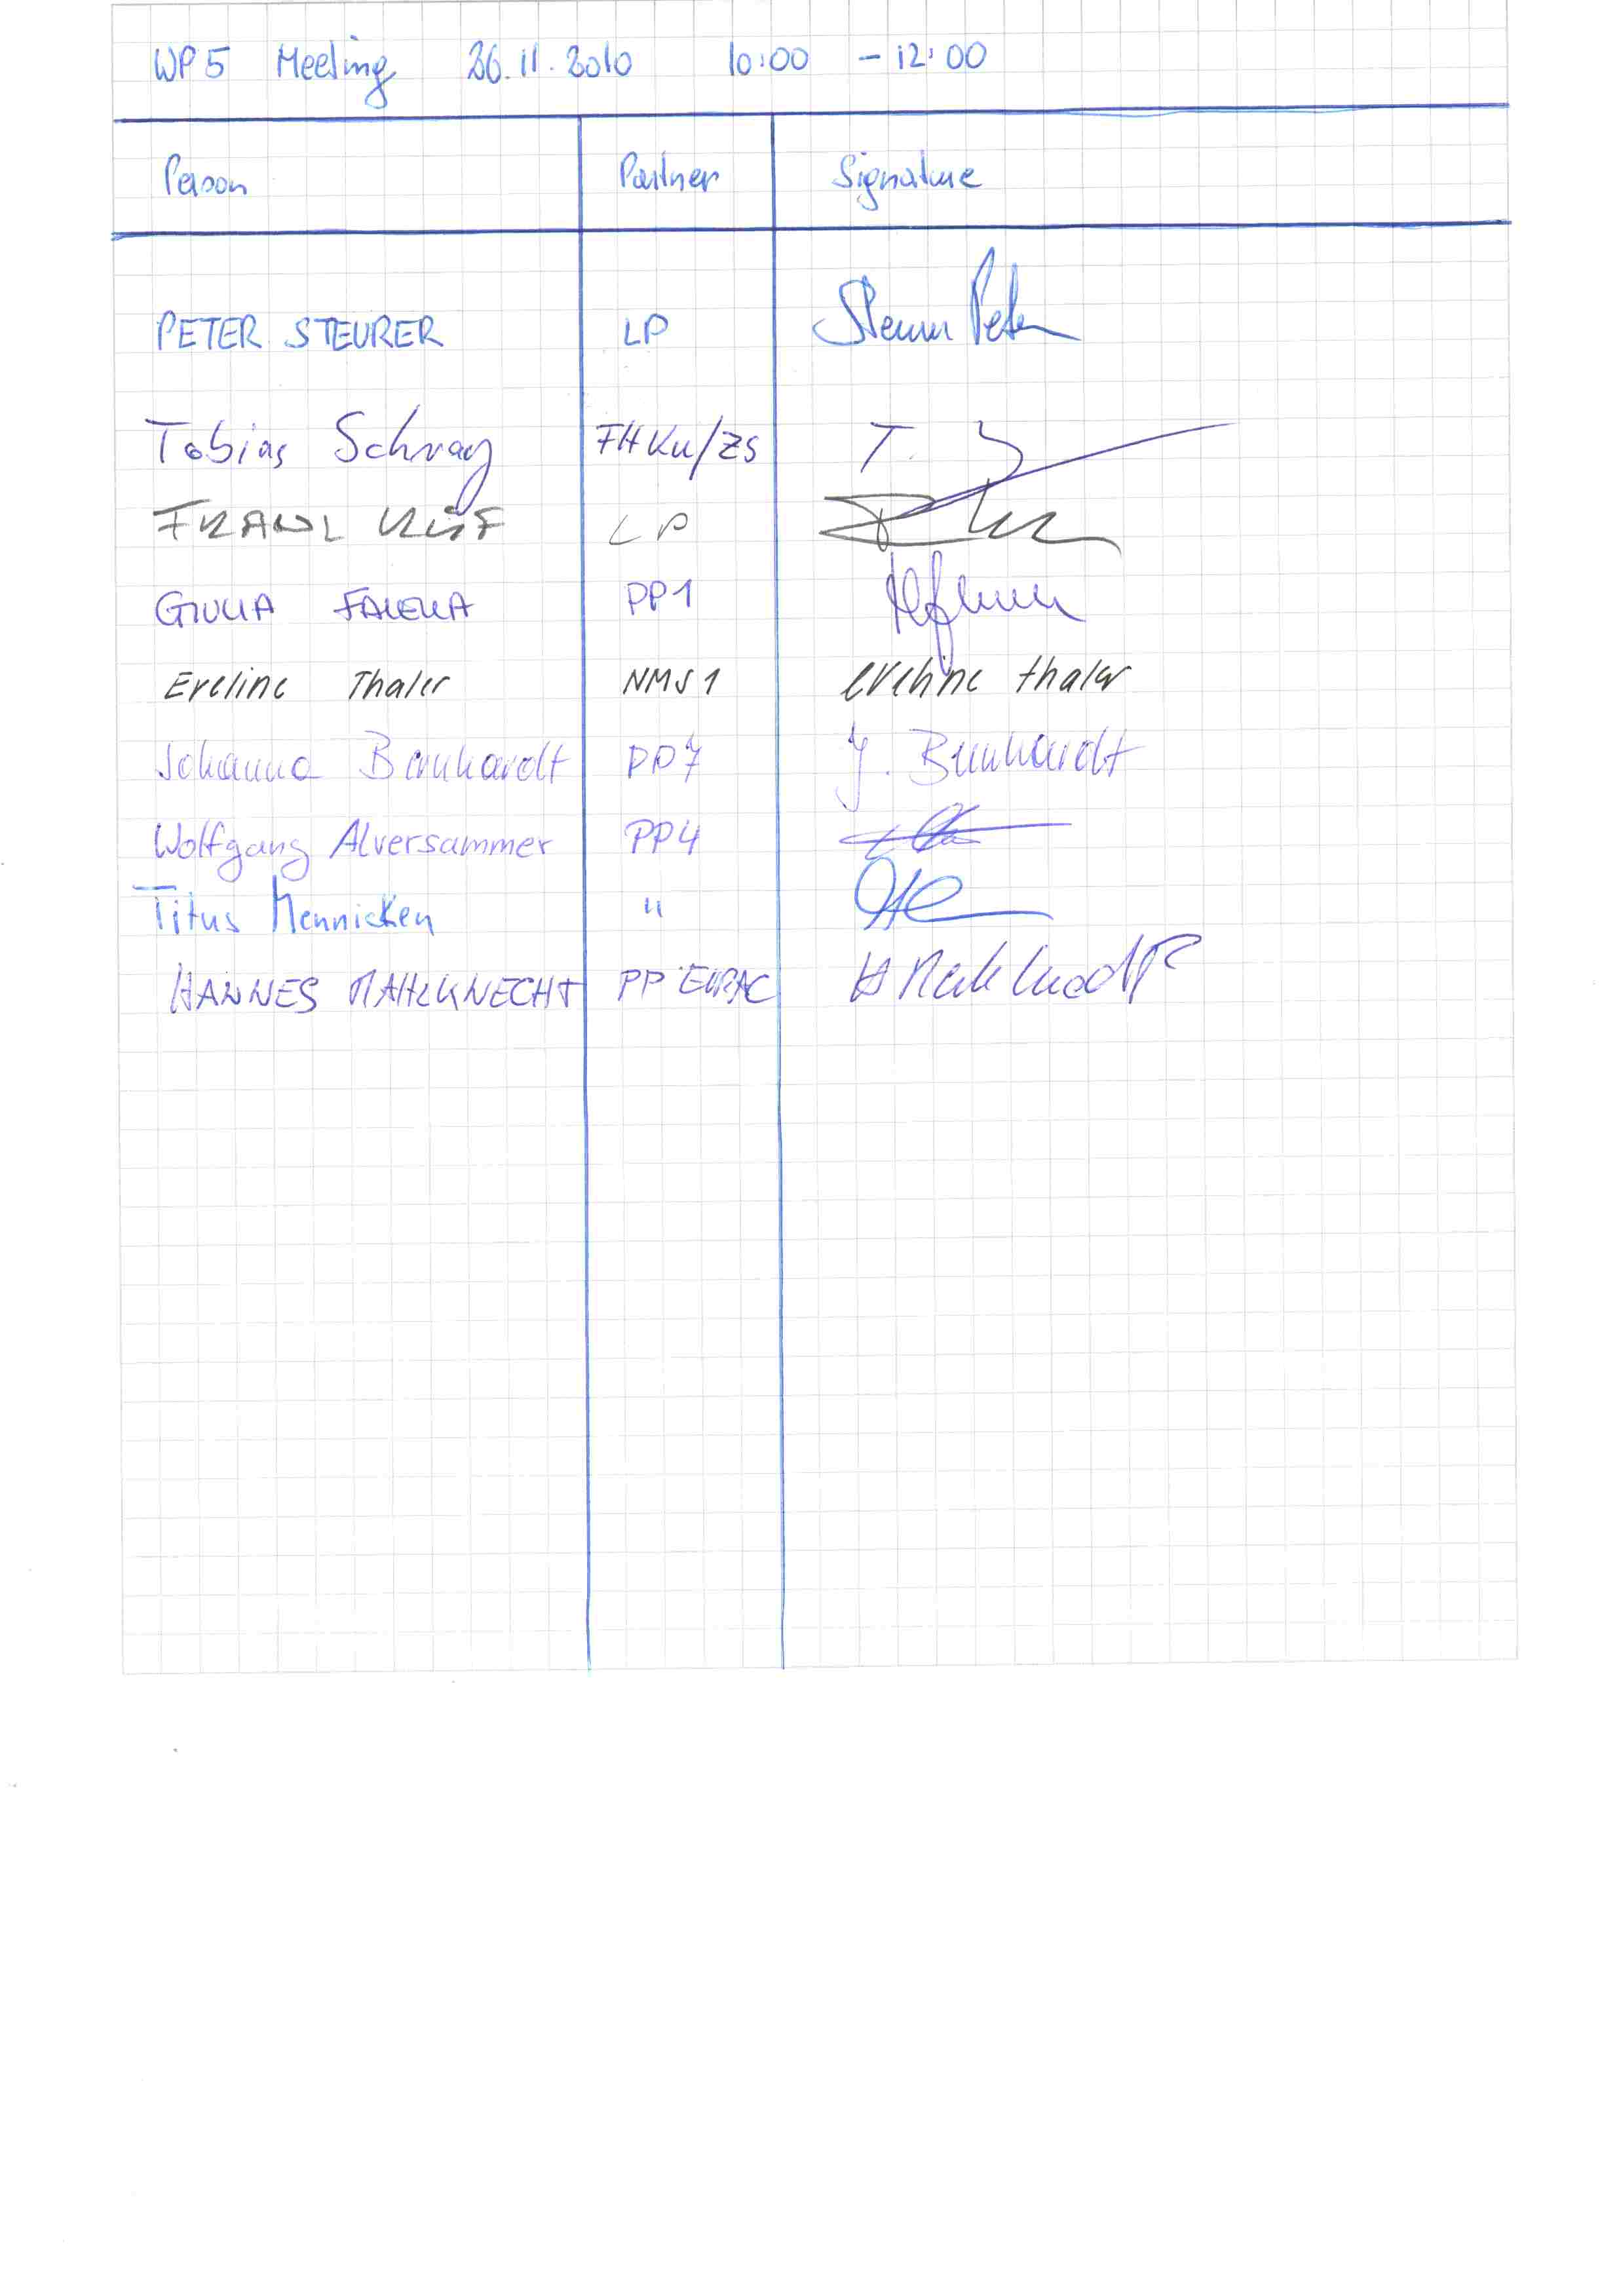 WP5 Meeting 26.11.2010 10:00 - 12:00
Person Partner Signature
PETER STEURER LP Steurer Peter
Tobias Schrag FH Ku/ZS T.
FRANZ RÜF LP
GIULIA FALELLA PP1
Eveline Thaler NMS1 eveline thaler
Johanna Bernhardt PP7 J. Bernhardt
Wolfgang Alversammer PP4
Titus Mennicken "
HANNES MAHLKNECHT PP EURAC H Mahlknecht